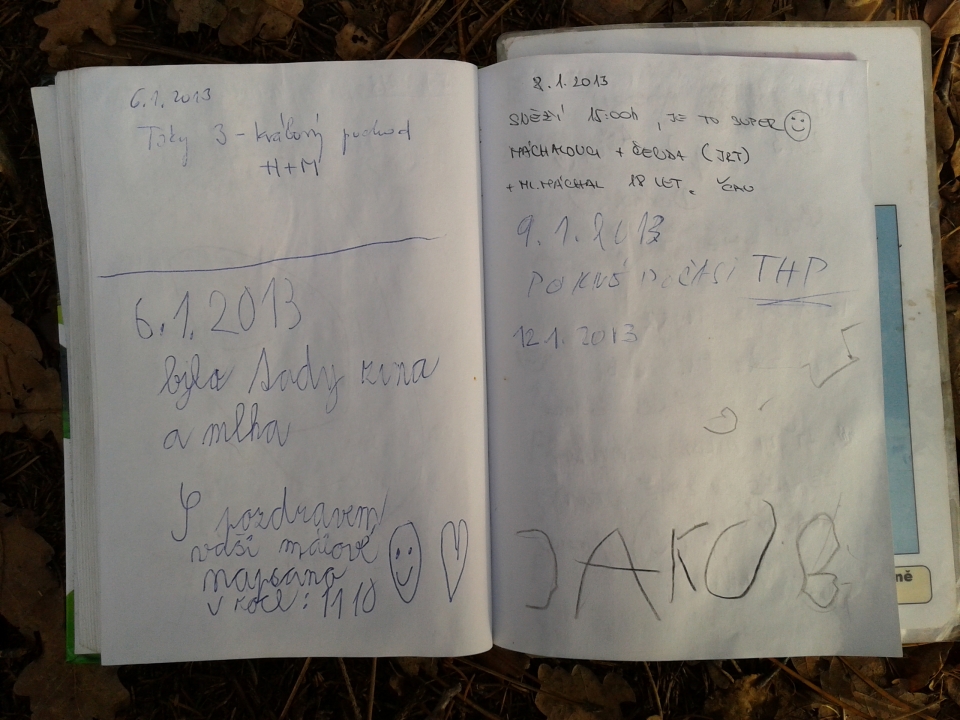 6.1.2013
3-králový pochod
H+M
6.1.2013
bylo tady zima
a mlha
S pozdravem
napsána
v roce: 11 10
8.1.2013
SNĚŽÍ 15:00h, JE TO SUPER
MÁCHALOVCI + ČENDA (JRT)
+ ML.MÁCHAL 18 LET. ČAU
9.1.2013
POČASÍ THP
12.1.2013
JAKUB
ně